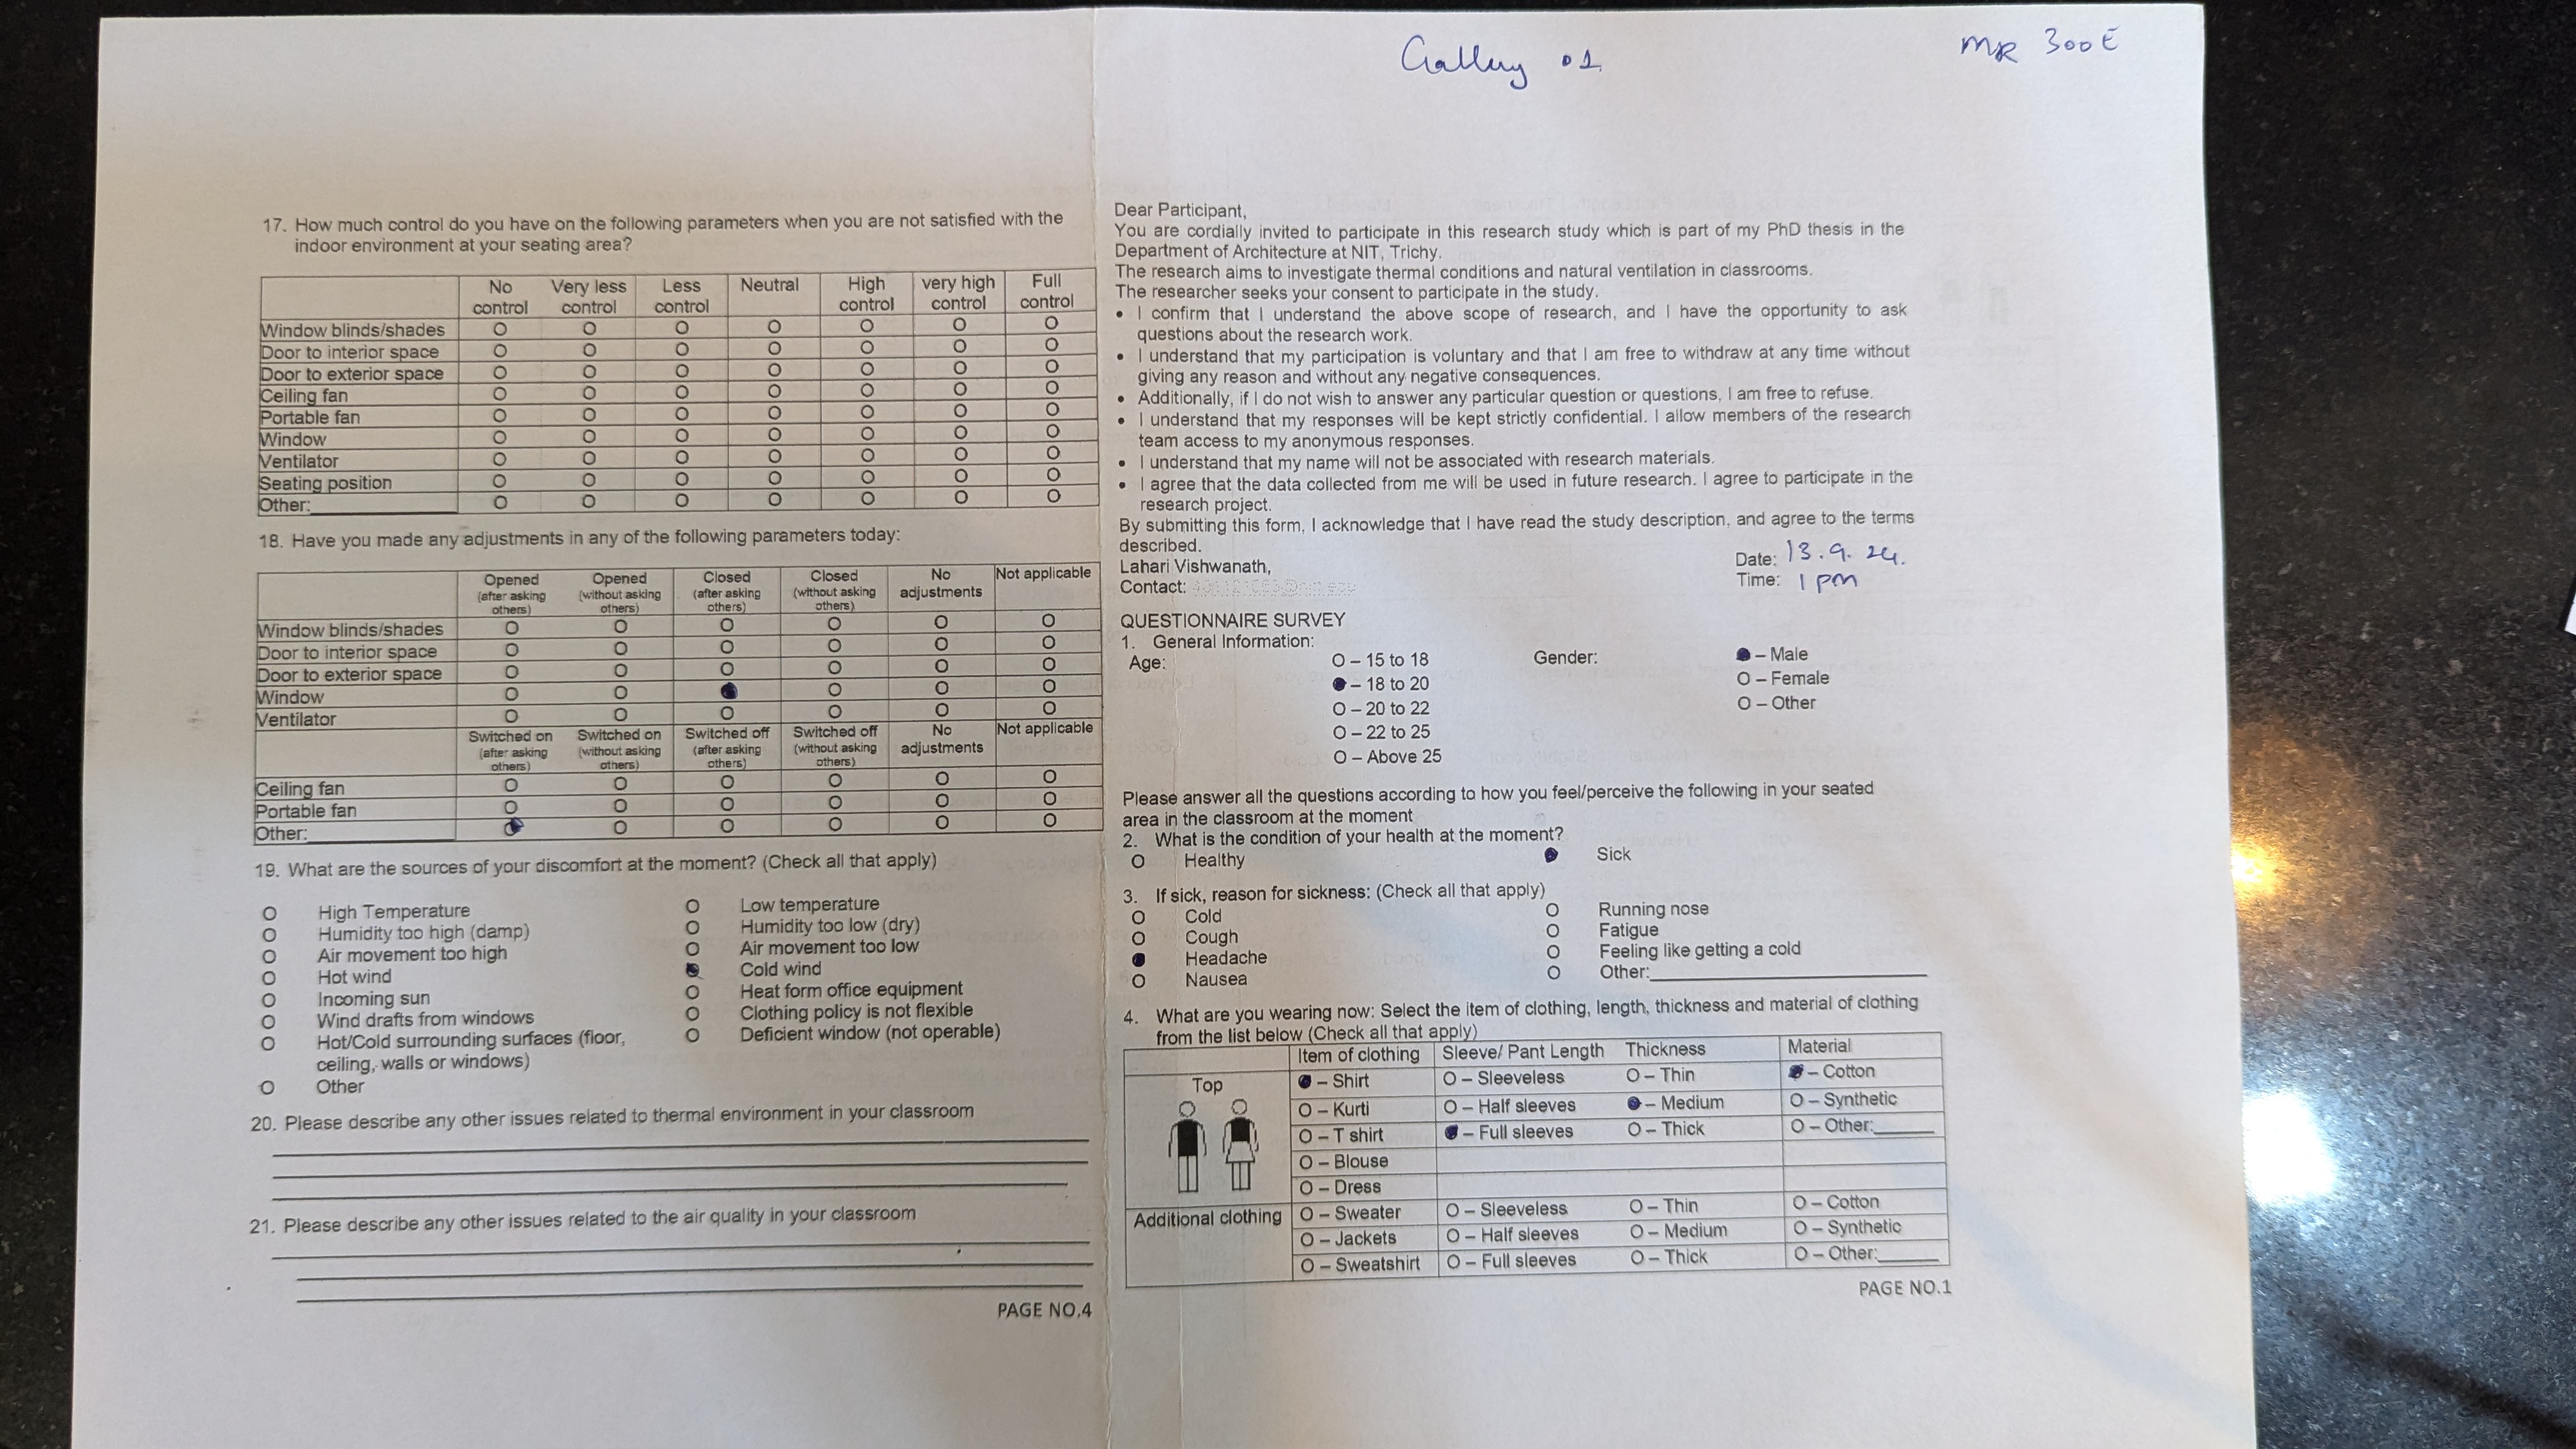 Gallery 01
MR 300E
17. How much control do you have on the following parameters when you are not satisfied with the
indoor environment at your seating area?
No control Very less control Less control Neutral High control very high control Full control
Window blinds/shades O O O O O O O
Door to interior space O O O O O O O
Door to exterior space O O O O O O O
Ceiling fan O O O O O O O
Portable fan O O O O O O O
Window O O O O O O O
Ventilator O O O O O O O
Seating position O O O O O O O
Other:________ O O O O O O O
18. Have you made any adjustments in any of the following parameters today:
Opened (after asking others) Opened (without asking others) Closed (after asking others) Closed (without asking others) No adjustments Not applicable
Window blinds/shades O O O O O O
Door to interior space O O O O O O
Door to exterior space O O O O O O
Window O O ● O O O
Ventilator O O O O O O
Switched on (after asking others) Switched on (without asking others) Switched off (after asking others) Switched off (without asking others) No adjustments Not applicable
Ceiling fan O O O O O O
Portable fan O O O O O O
Other:________ ● O O O O O
19. What are the sources of your discomfort at the moment? (Check all that apply)
O High Temperature O Low temperature
O Humidity too high (damp) O Humidity too low (dry)
O Air movement too high O Air movement too low
O Hot wind ● Cold wind
O Incoming sun O Heat form office equipment
O Wind drafts from windows O Clothing policy is not flexible
O Hot/Cold surrounding surfaces (floor, O Deficient window (not operable)
ceiling, walls or windows)
O Other
20. Please describe any other issues related to thermal environment in your classroom
21. Please describe any other issues related to the air quality in your classroom
PAGE NO.4
Dear Participant,
You are cordially invited to participate in this research study which is part of my PhD thesis in the
Department of Architecture at NIT, Trichy.
The research aims to investigate thermal conditions and natural ventilation in classrooms.
The researcher seeks your consent to participate in the study.
• I confirm that I understand the above scope of research, and I have the opportunity to ask
questions about the research work.
• I understand that my participation is voluntary and that I am free to withdraw at any time without
giving any reason and without any negative consequences.
• Additionally, if I do not wish to answer any particular question or questions, I am free to refuse.
• I understand that my responses will be kept strictly confidential. I allow members of the research
team access to my anonymous responses.
• I understand that my name will not be associated with research materials.
• I agree that the data collected from me will be used in future research. I agree to participate in the
research project.
By submitting this form, I acknowledge that I have read the study description, and agree to the terms
described.
Date: 13.9.24.
Lahari Vishwanath,
Time: 1 pm
Contact:
QUESTIONNAIRE SURVEY
1. General Information:
Age: O – 15 to 18 Gender: ● – Male
● – 18 to 20 O – Female
O – 20 to 22 O – Other
O – 22 to 25
O – Above 25
Please answer all the questions according to how you feel/perceive the following in your seated
area in the classroom at the moment
2. What is the condition of your health at the moment?
O Healthy ● Sick
3. If sick, reason for sickness: (Check all that apply)
O Cold O Running nose
O Cough O Fatigue
● Headache O Feeling like getting a cold
O Nausea O Other:________
4. What are you wearing now: Select the item of clothing, length, thickness and material of clothing
from the list below (Check all that apply)
Item of clothing Sleeve/ Pant Length Thickness Material
Top ● – Shirt O – Sleeveless O – Thin ● – Cotton
O – Kurti O – Half sleeves ● – Medium O – Synthetic
O – T shirt ● – Full sleeves O – Thick O – Other:______
O – Blouse
O – Dress
Additional clothing O – Sweater O – Sleeveless O – Thin O – Cotton
O – Jackets O – Half sleeves O – Medium O – Synthetic
O – Sweatshirt O – Full sleeves O – Thick O – Other:______
PAGE NO.1